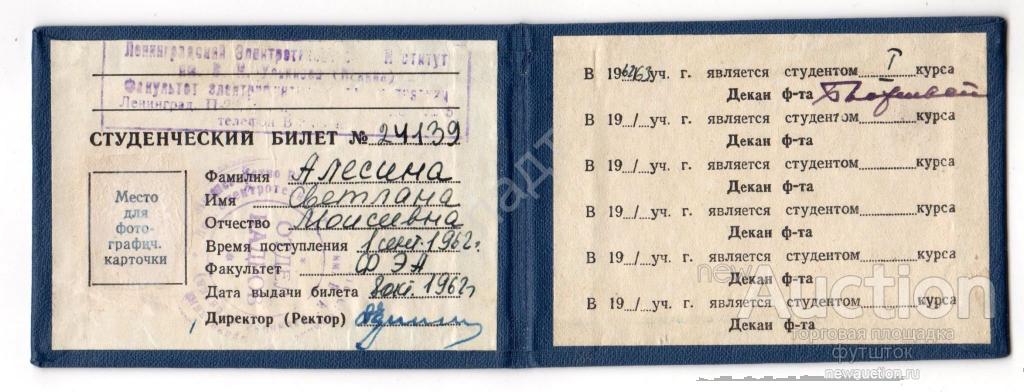 Ленинградский Электротех
им. В. И. Ульянова (Ленина)
Факультет
Ленинград, П-22
телефон В
СТУДЕНЧЕСКИЙ БИЛЕТ № 24139
Место
для
фото-
графич.
карточки
Фамилия Алесина
Имя Светлана
Отчество Моисеевна
Время поступления 1 сент. 1962 г.
Факультет ФЭА
Дата выдачи билета 8 окт. 1962 г.
Директор (Ректор)
В 1962/63 уч. г. является студентом I курса
Декан ф-та
В 19../...уч. г. является студентом курса
Декан ф-та
В 19../...уч. г. является студентом курса
Декан ф-та
В 19../...уч. г. является студентом курса
Декан ф-та
В 19../...уч. г. является студентом курса
Декан ф-та
В 19../...уч. г. является студентом курса
Декан ф-та
newAuction
торговая площадка
футшток
newauction.ru